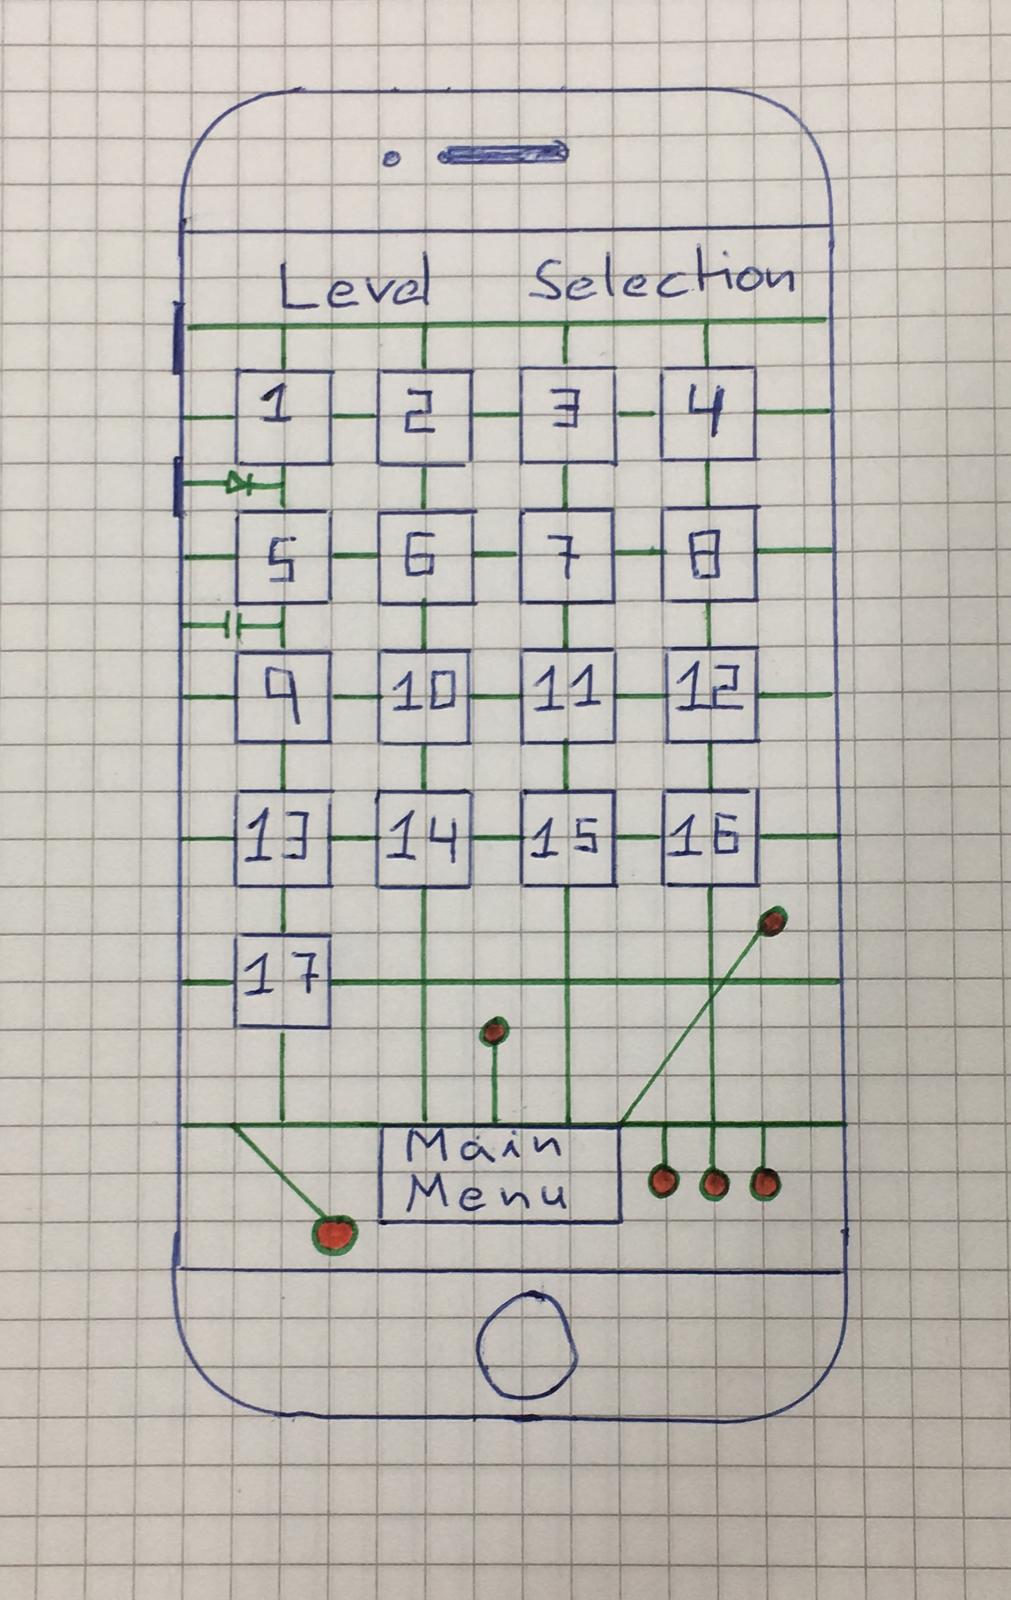 Level Selection
1 2 3 4
5 6 7 8
9 10 11 12
13 14 15 16
17
Main
Menu